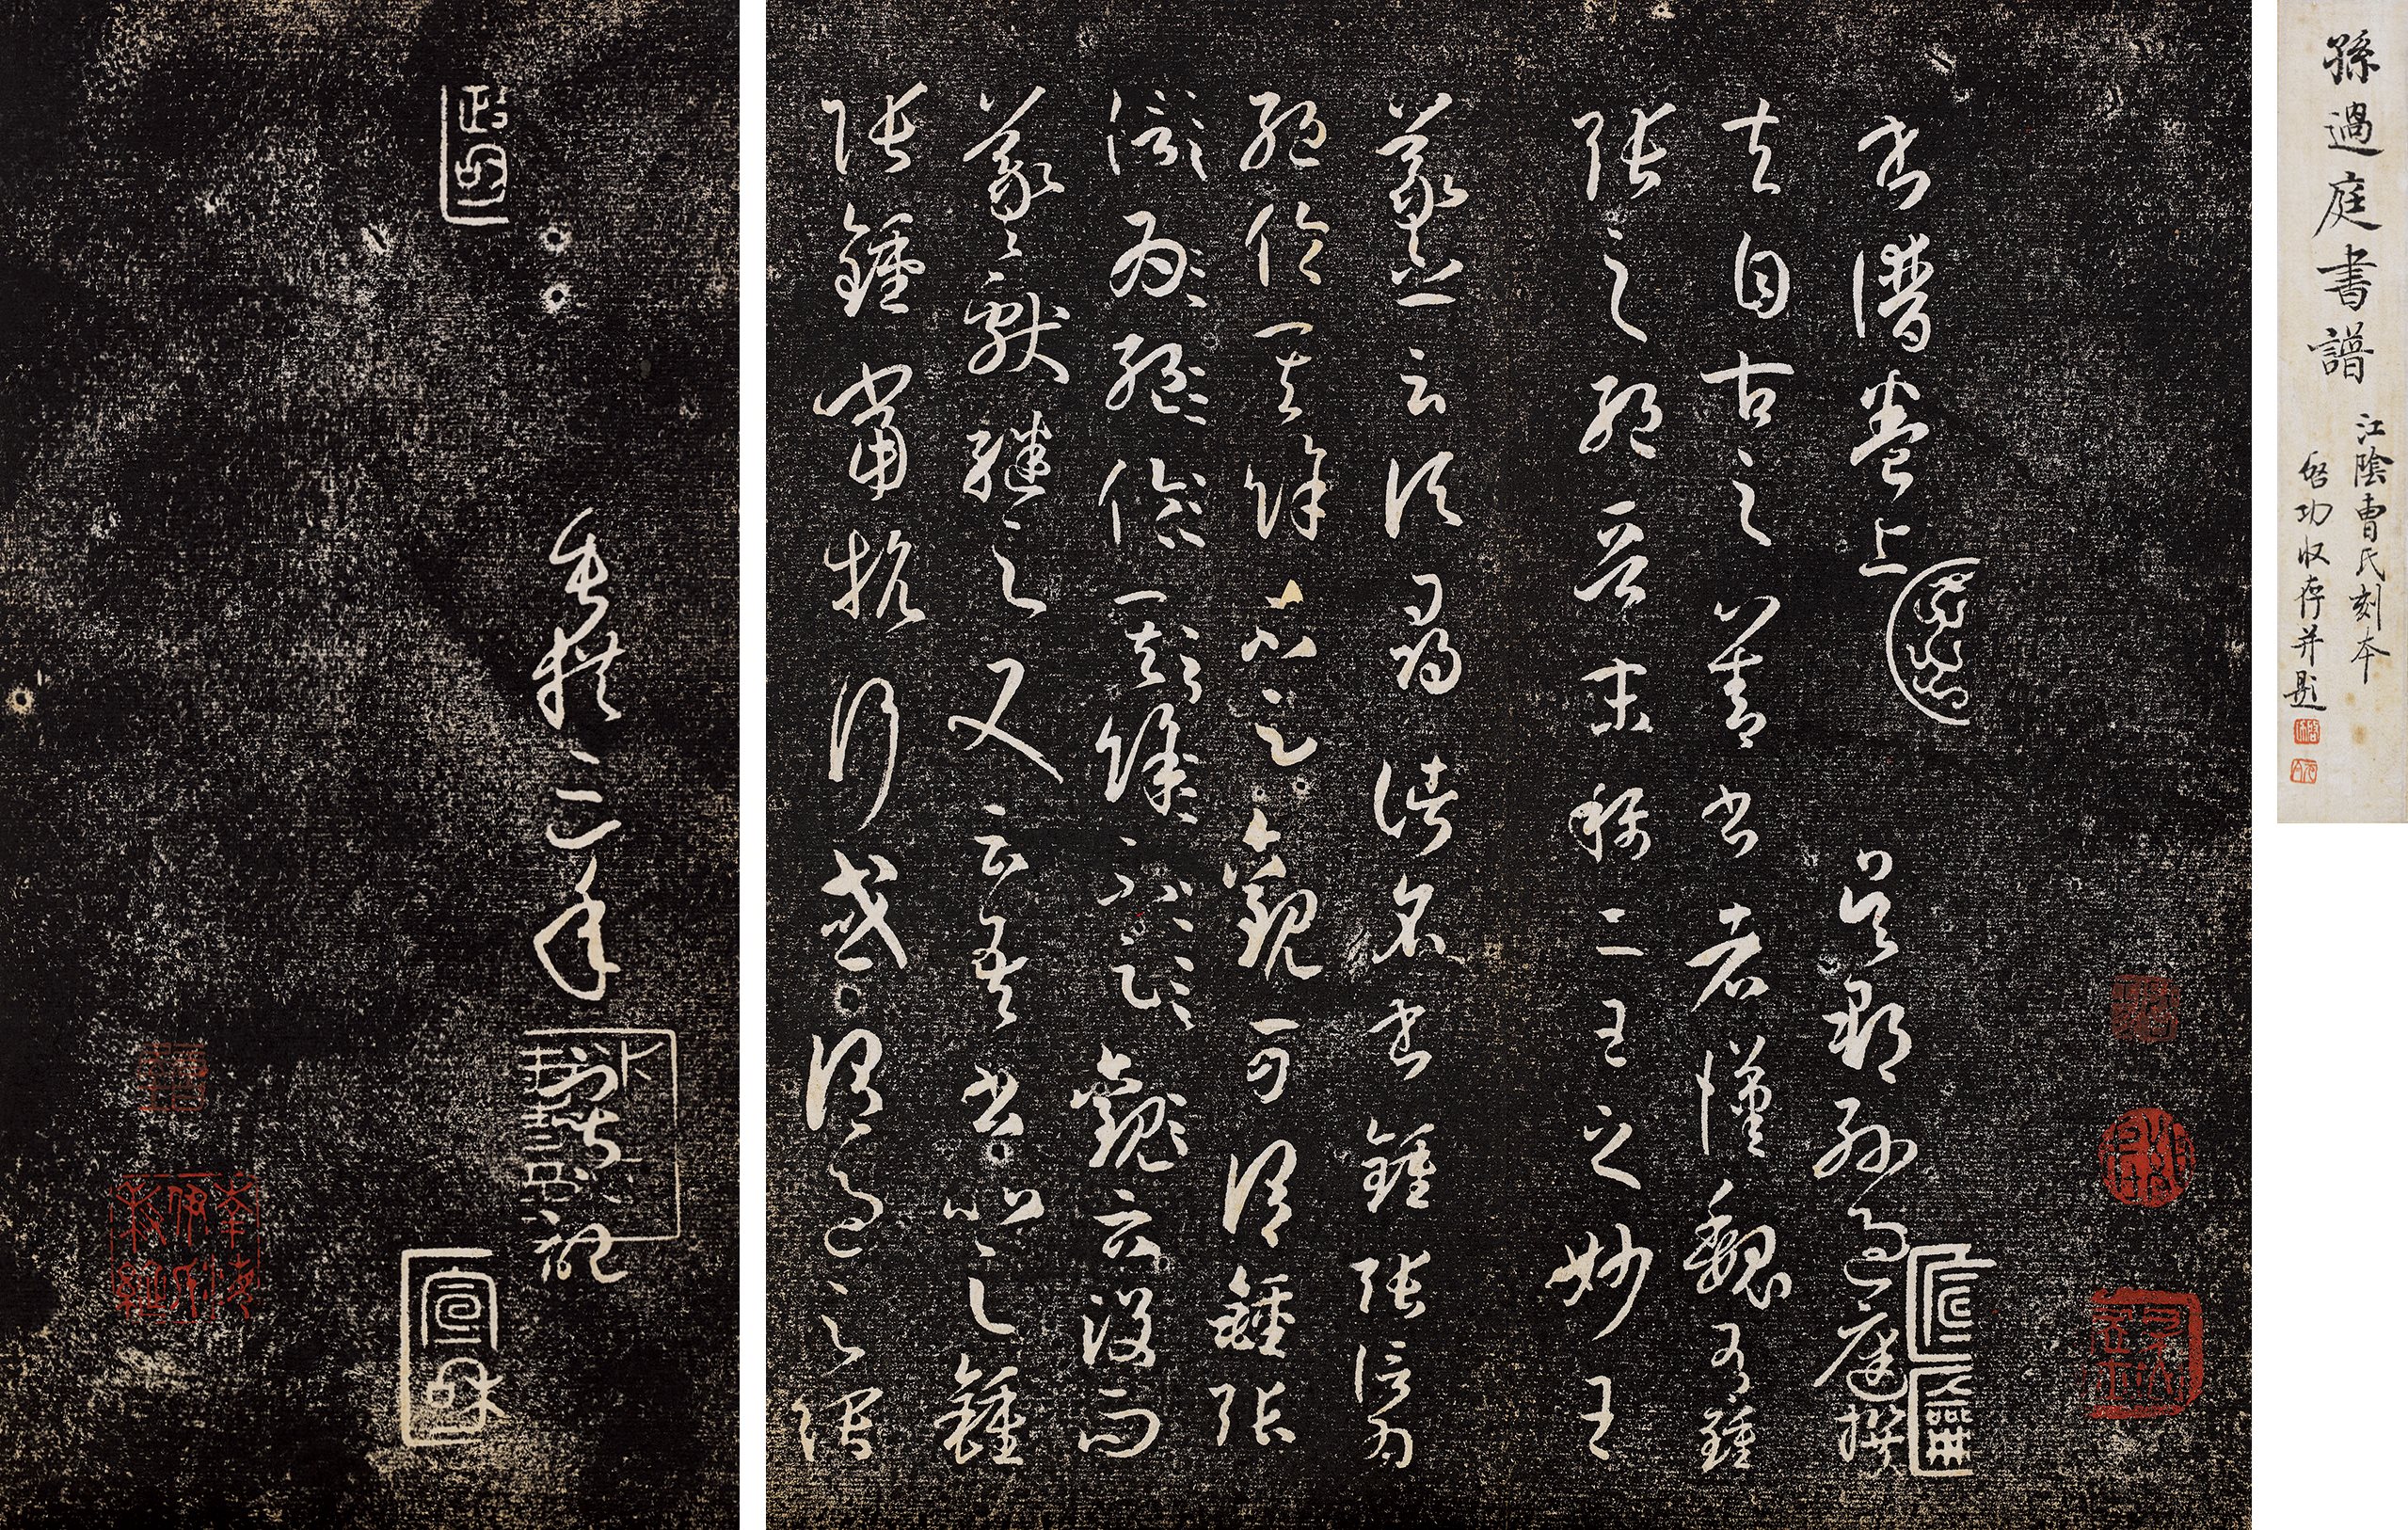 孫過庭書譜
江陰曹氏刻本
啓功収存并題
書譜卷上 吳郡孫過庭撰
夫自古之善書者漢魏有鍾
張之絕晉末稱二王之妙王
羲之云頃尋諸名書鍾張信為
絕倫其餘不足觀可謂鍾張
信為絕倫其餘不足觀云沒而
羲獻繼之又云吾書比之鍾
張鍾當抗行或謂過之張
垂拱三年寫記
政和
宣和